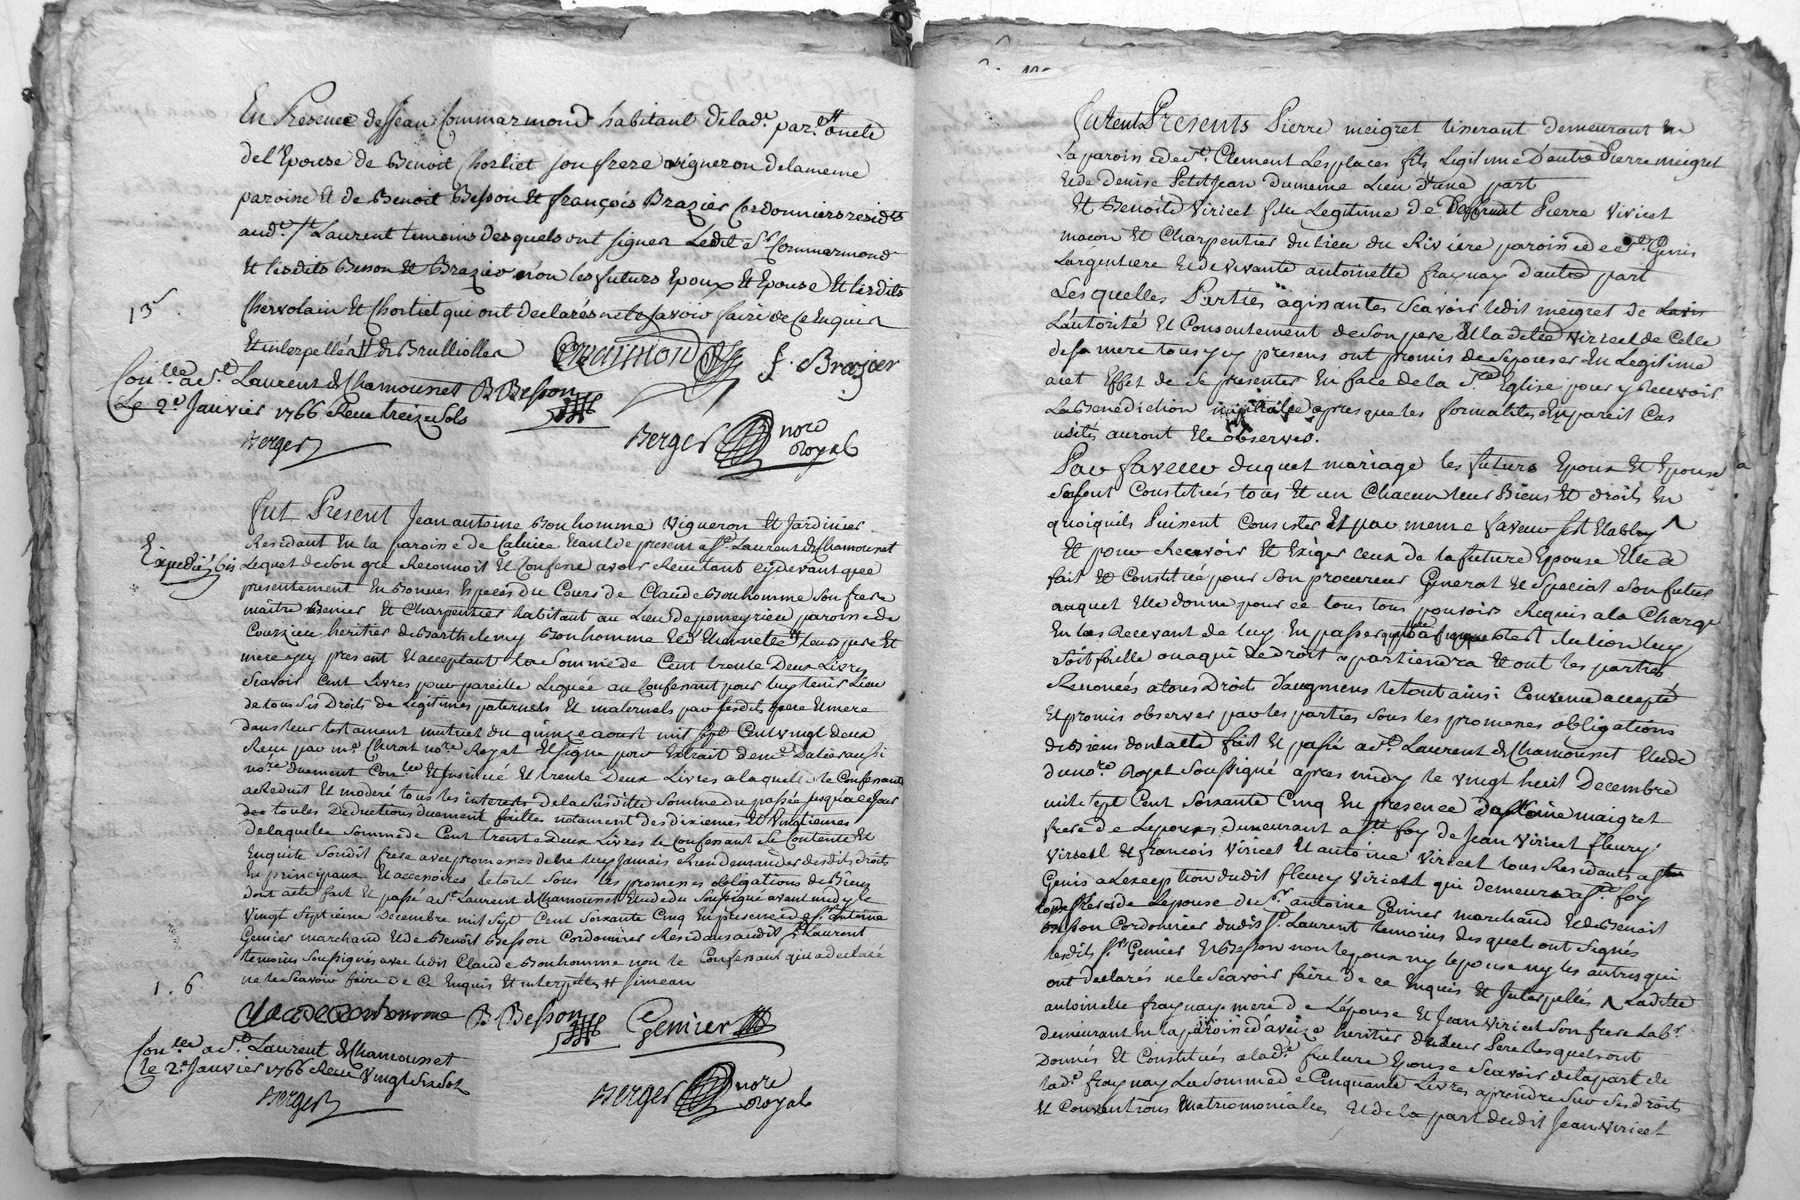 En Presence de Jean Commarmond habitant de lad.e par.e
de l'Epouse de Benoit Chorliet son frere vigneron de la meme
paroisse et de Benoit Besson et françois Brazier Cordonniers residts
aud.t St Laurent temoins desquels ont signer Ledit Sr Commarmond
Et lesdits Besson Et Brazier non les futurs Epoux Et Epouse Et lesdits
Chervolain Et Chorliet qui ont declarés ne le savoir faire de Ce Enquis
Et interpellés # de Brulliolles
13s
Commarmond f. Brazier
Con.lle a St Laurent de Chamousset B Besson
Le 2e Janvier 1766 Reçu treize sols
Berger Berger nore
Royal
fut Present Jean antoine Bonhomme Vigneron Et Jardinier
Residant En la paroisse de Caluire Etant de present a St Laurent de Chamousset
Expedié bis
Lequel de son gré Reconnoit Et Confesse avoir Reçu tant cydevant que
presentement En Bonnes Especes du Cours de Claude Bonhomme son frere
maître Menier Et Charpentier habitant au Lieu de pomeyrieu paroisse de
Courzieu heritier de Barthelemy Bonhomme Et d'Etiennette leurs pere Et
mere icy present Et acceptant la Somme de Cent trente Deux Livres
Scavoir Cent Livres pour pareille Leguée au Confessant pour luy tenir Lieu
de tous ses Droits de Legitimes paternels Et maternels par lesdits pere Et mere
dans leur testament mutuel du quinze aoust mil sept Cent vingt deux
Reçu par me Clerat no.re Royal Et signé pour Extrait de me aussi
no.re duement Con.lee Et insinué Et trente Deux Livres a laquelle le Confessant
a Reduit Et moderé tous les interets de la Susditte Somme du passée jusqu'a ce jour
de toutes Deductions duement faittes notament des dixiemes Et vingtiemes
de laquelle Somme de Cent trente Deux Livres le Confessant se Contente Et
Enquitte Sondit frere avec promesses de ne luy Jamais Rien demander desdits droits
En principaux Et accessoires le tout Sous les promesses obligations de Biens
dont acte fait Et passé a St Laurent de Chamousset Etude du Soussigné avant midy le
Vingt Septieme Decembre mil sept Cent Soixante Cinq En presence de Sr antoine
Genier marchand Et de Benoit Besson Cordonnier Residans audit St Laurent
temoins Soussignés avec ledit Claude Bonhomme non le Confessant qui a declaré
ne le Scavoir faire de Ce Enquis Et interpellés # Simean
1.6
Claude Bonhomme B Besson Genier
Con.lle a St Laurent de Chamousset
le 2e Janvier 1766 Reçu vingt six sols
Berger Berger nore
Royal
furent Presents Pierre meigret tisserant demeurant En
la paroisse de St Clement Les places fils Legitime D'autre Pierre meigret
Et de Denise Petitjean du meme Lieu d'une part
Et Benoite Viricel fille Legitime de Deffunt Pierre Viricel
macon Et Charpentier du lieu du Riviere paroisse de St Genis
Largentiere Et de vivante antoinette fraynay d'autre part
Les quelles Parties agissantes Scavoir ledit meigret de
L'autorité Et Consentement de son pere Et ladite Viricel de Celle
de sa mere tous icy presens ont promis de se pouser En Legitime
a cet Effet de se presenter En face de la Ste Eglise pour y Recevoir
La Benediction nuptiale apres que les formalites En pareil Cas
usités auront Eté observés.
Pau faveur duquel mariage les futurs Epoux Et Epouse
se sont Constitués tous Et un Chacun leur Biens Et droits En
quoiquils Puissent Consister Et par meme faveur
Et pour Recevoir Et Exiger ceux de la future Epouse Elle a
fait Et Constitué pour Son procureur General Et Special Son futur
auquel Elle donne pour ce tous tous pouvoirs Requis a la Charge
En les Recevant de luy En passer
soit faille ou a qui de Droit apartiendra Et ont les parties
Renoncés a tous Droits d'augmens le tout ainsi Convenu accepté
Et promis observer par les parties Sous les promesses obligations
de Biens dont acte fait Et passé a St Laurent de Chamousset Etude
du no.re Royal Soussigné apres midy le vingt huit Decembre
mil sept Cent Soixante Cinq En presence D'antoine maigret
frere de Lepoux demeurant a Ste foy de Jean Viricel fleury
Viricel Et françois Viricel Et antoine Viricel tous Residants a St
Genis a L'exeception dudit fleury Viricel qui demeure a Ste foy
freres de Lepouse du Sr antoine Genier marchand Et de Benoit
Besson Cordonnier dudit St Laurent temoins desquels ont Signés
lesdits Sr Genier Et Besson non lepoux ny lepouse ny les autres qui
ont declarés ne le Scavoir faire de ce Enquis Et Interpellés ʌ Laditte
antoinette fraynay mere de L'épouse Et Jean Viricel Son frere Lab.r
demeurant En la paroisse d'aveize heritier de leur Pere lesquels ont
Donnés Et Constitués a lad.e future Epouse Scavoir de la part de
lad.e fraynay La Somme de Cinquante Livres a prendre Sur Ses droits
Et Conventions Matrimonialles Et de la part dudit Jean Viricel